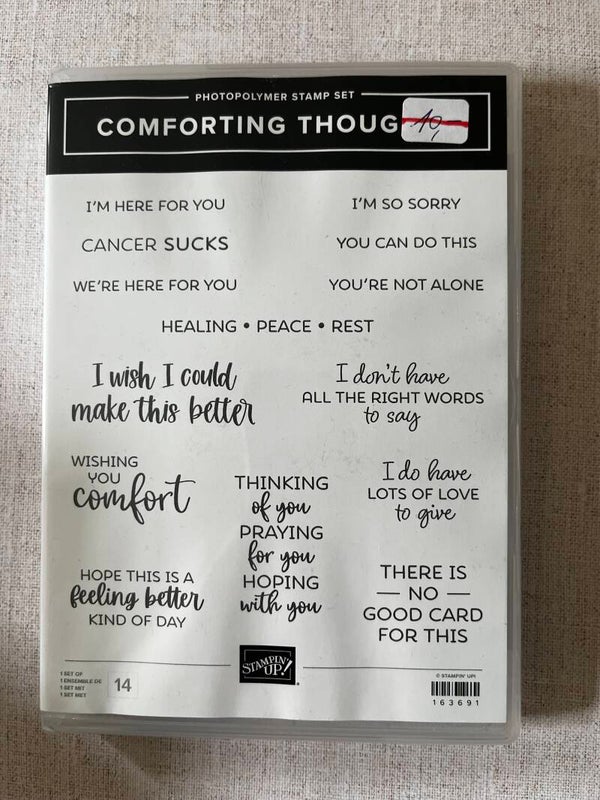 PHOTOPOLYMER STAMP SET
COMFORTING THOUG
10,-
I'M HERE FOR YOU
I'M SO SORRY
CANCER SUCKS
YOU CAN DO THIS
WE'RE HERE FOR YOU
YOU'RE NOT ALONE
HEALING • PEACE • REST
I wish I could
make this better
I don't have
ALL THE RIGHT WORDS
to say
WISHING
YOU
comfort
THINKING
of you
PRAYING
for you
HOPING
with you
I do have
LOTS OF LOVE
to give
HOPE THIS IS A
feeling better
KIND OF DAY
THERE IS
— NO —
GOOD CARD
FOR THIS
1 SET OF
1 ENSEMBLE DE
1 SET MIT
1 SET MET
14
STAMPIN'
UP!
®
© STAMPIN' UP!
163691